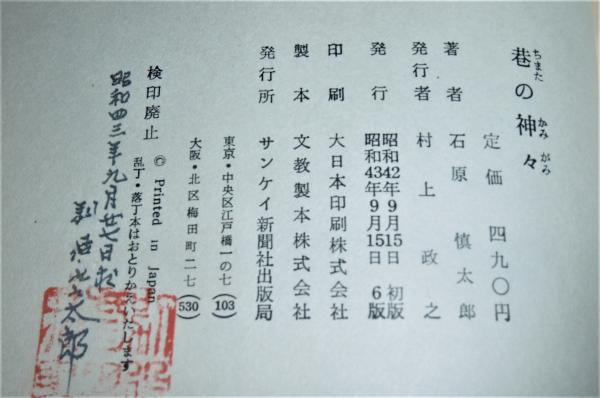 巷の神々
ちまた
かみ がみ
定価 四九〇円
著者 石原慎太郎
発行者 村上政之
発行 昭和42年9月15日 初版
昭和43年9月15日 6版
印刷 大日本印刷株式会社
製本 文教製本株式会社
発行所 サンケイ新聞社出版局
東京・中央区江戸橋一の七 (103)
大阪・北区梅田町二七 (530)
検印廃止 © Printed in Japan
乱丁・落丁本はおとりかえいたします
昭和四三年九月廿七日
太郎